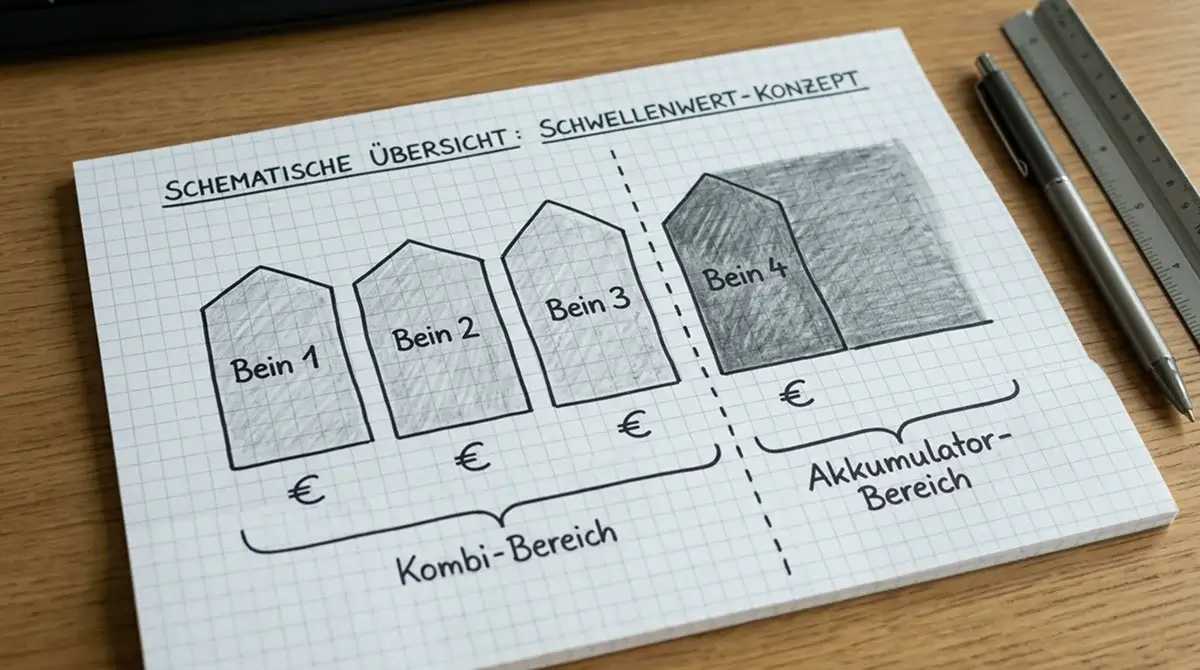 SCHEMATISCHE ÜBERSICHT: SCHWELLENWERT-KONZEPT
Bein 1
Bein 2
Bein 3
Bein 4
€
€
€
€
Kombi-Bereich
Akkumulator-
Bereich